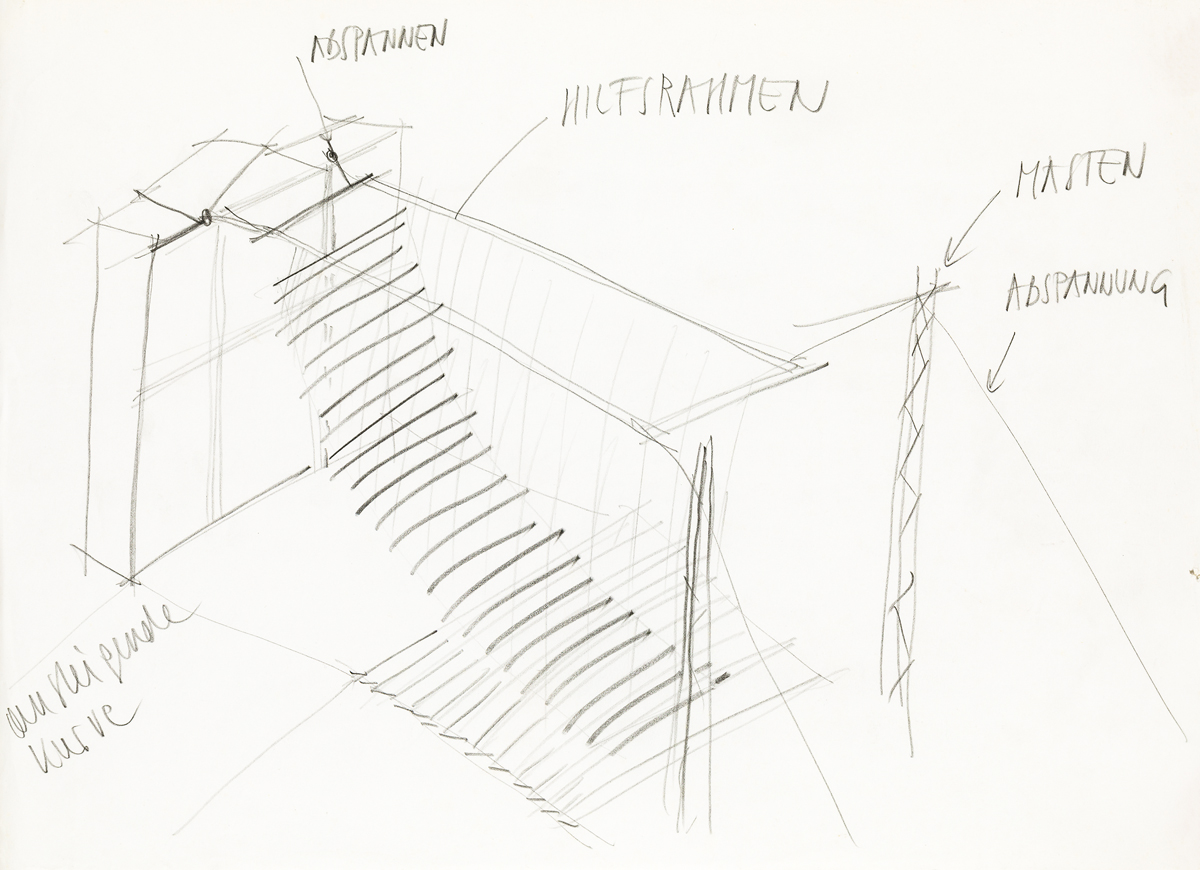 ABSPANNEN
HILFSRAHMEN
MASTEN
ABSPANNUNG
ansteigende
Kurve